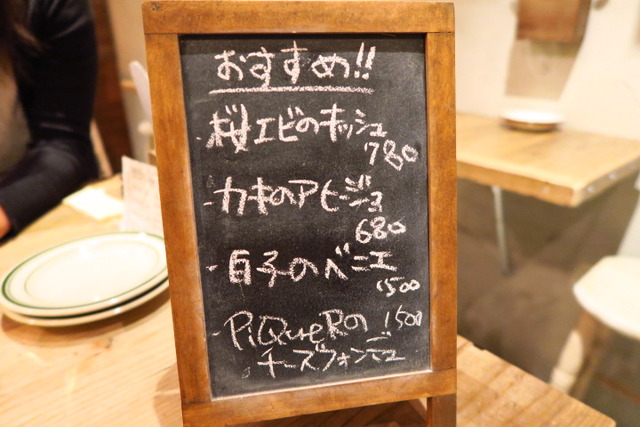 おすすめ!!
・桜エビのキッシュ
780
・カキのアヒージョ
680
・白子のベニエ
1500
・PiQueRの 1500
チーズフォンデュ